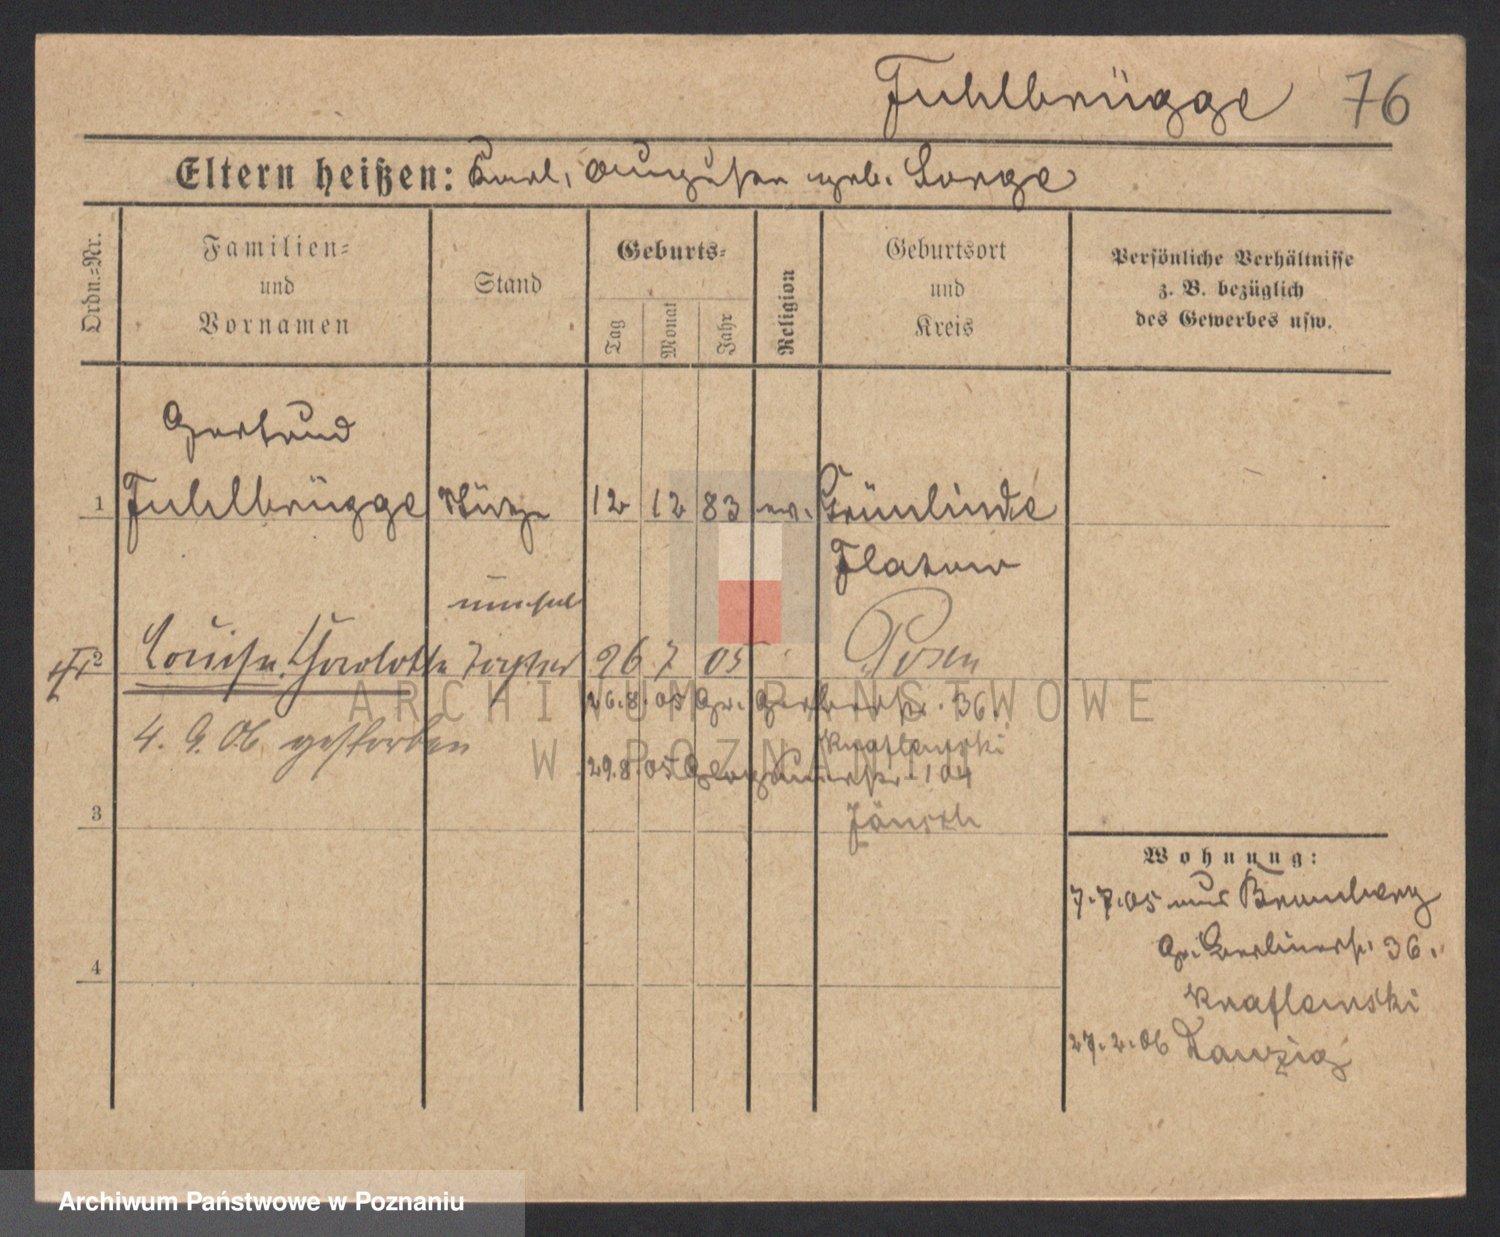 Fuhlbrügge 76
Eltern heißen: Karl, Auguste geb. Sorge
Ordn.=Nr.
Familien=
und
Vornamen
Stand
Geburts=
Tag
Monat
Jahr
Religion
Geburtsort
und
Kreis
Persönliche Verhältnisse
z. B. bezüglich
des Gewerbes usw.
Gertrud
1 Fuhlbrügge Stütze 12 12 83 ev. Grünlinde
Flatow
unehel
2 Louise Charlotte Tochter 26 7 05 Posen
26.8.05 Gr. Gerberstr. 36.
4. 9. 06 gestorben
29.8.05 104
3
Wohnung:
7.7.05 aus Bromberg
Gr. Berlinerstr. 36.
4
27.2.06 Danzig
ARCHIWUM PAŃSTWOWE
W POZNANIU
Archiwum Państwowe w Poznaniu